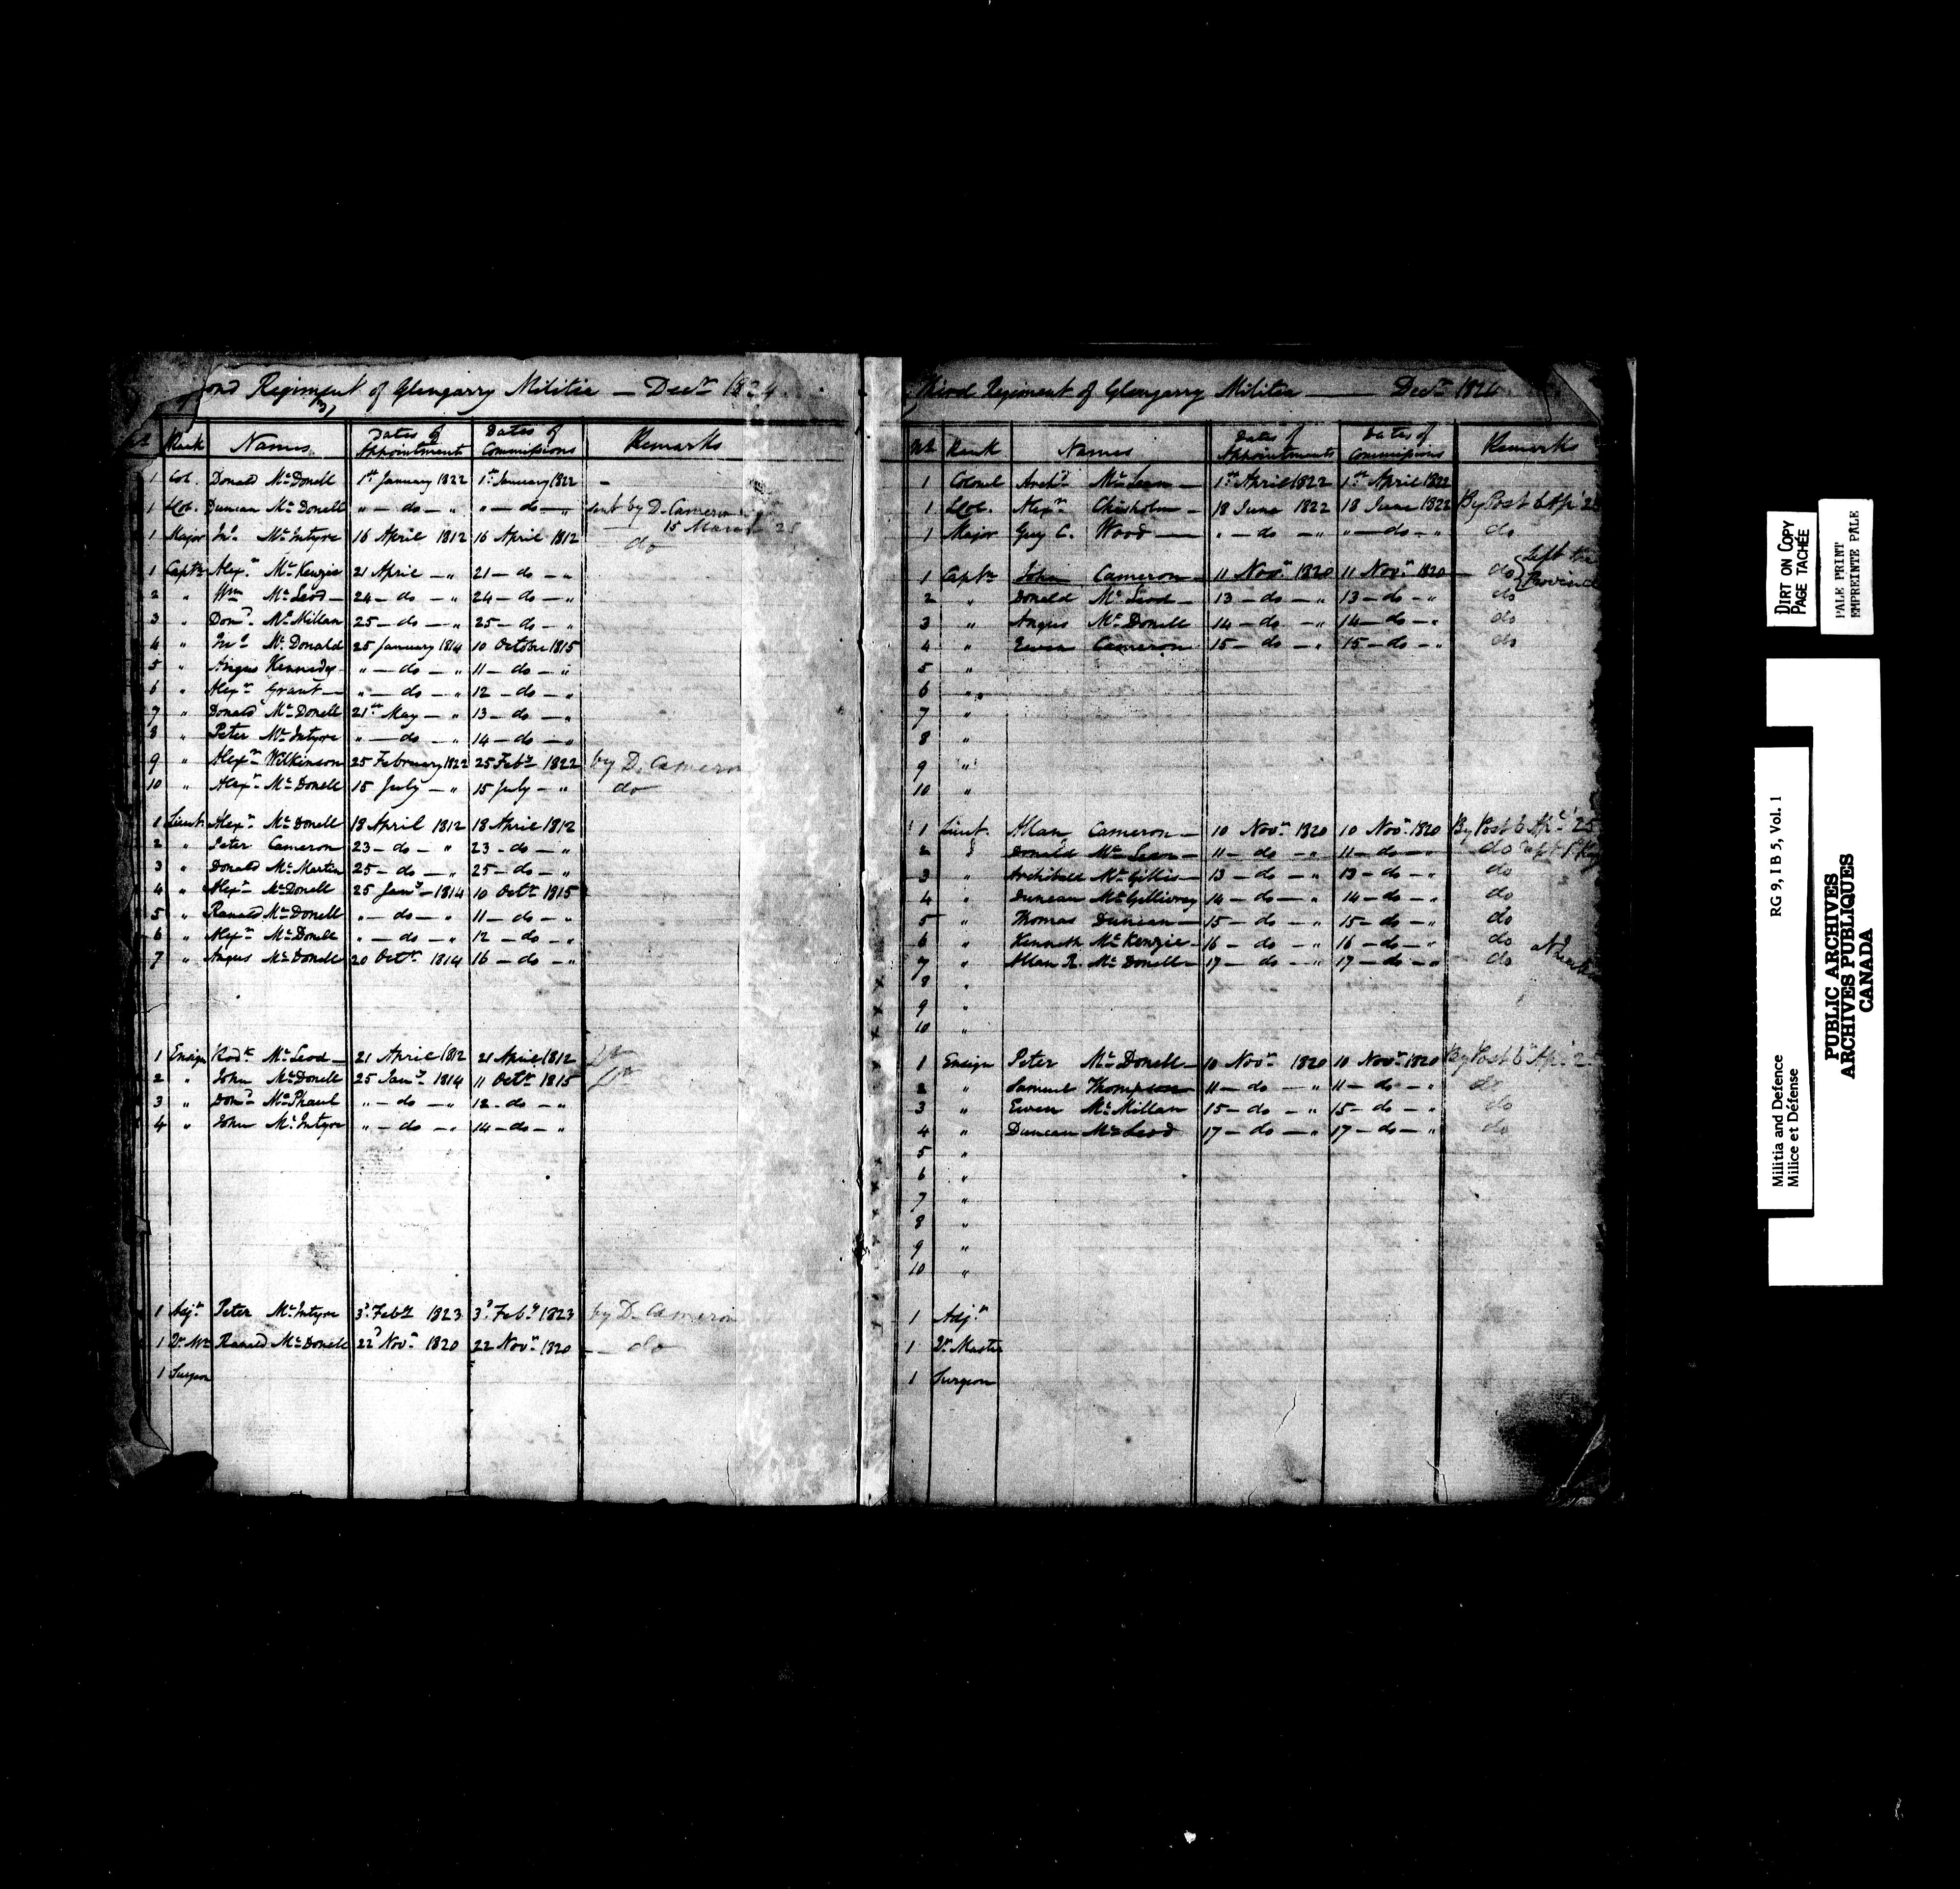 ond Regiment of Glengarry Militia — Decr 1824
No Rank Names Dates of Appointments Dates of Commissions Remarks
1 Col. Donald McDonell 1st January 1822 1st January 1822 -
1 LCol. Duncan McDonell " — do — " " — do — " sent by D. Cameron
15 March 25
1 Major Jno McIntyre 16 April 1812 16 April 1812 do
1 Captn Alexr McKenzie 21 April — " 21 — do — "
2 " Wm McLeod — 24 — do — " 24 — do — "
3 " Dond McMillan 25 — do — " 25 — do — "
4 " Jno McDonald 25 January 1814 10 October 1815
5 " Angus Kennedy " — do — " 11 — do — "
6 " Alexr Grant — " — do — " 12 — do — "
7 " Donald McDonell 21st May — " 13 — do — "
8 " Peter McIntyre " — do — " 14 — do — "
9 " Alexr Wilkinson 25 February 1822 25 Feby 1822 by D. Cameron
10 " Alexr McDonell 15 July — " 15 July — " do
1 Lieut. Alexr McDonell 18 April 1812 18 April 1812
2 " Peter Cameron 23 — do — " 23 — do — "
3 " Donald McMartin 25 — do — " 25 — do — "
4 " Alexr McDonell 25 Jany — 1814 10 Octr 1815
5 " Ranald McDonell " — do — " 11 — do — "
6 " Alexr McDonell " — do — " 12 — do — "
7 " Angus McDonell 20 Octr 1814 16 — do — "
1 Ensign Rodk McLeod — 21 April 1812 21 April 1812
2 " John McDonell 25 Jany 1814 11 Octr 1815
3 " Dond McPhaul " — do — " 12 — do — "
4 " John McIntyre " — do — " 14 — do — "
1 Adjt Peter McIntyre 3d Feby 1823 3d Feby 1823 by D. Cameron
1 Qr Mr Ranald McDonell 22d Novr 1820 22 Novr 1820 — do
1 Surgeon
Third Regiment of Glengarry Militia — Decr 1824
No Rank Names Dates of Appointments Dates of Commissions Remarks
1 Colonel Archd McLean — 1st April 1822 1st April 1822
1 LCol. Alexr Chisholm — 18 June 1822 18 June 1822 By Post 6 Apl 25
1 Major Guy C. Wood — " — do — " " — do — " do
1 Captn John Cameron — 11 Novr 1820 11 Novr 1820 — do Left the Province
2 " Donald McLeod — 13 — do — " 13 — do — " do
3 " Angus McDonell 14 — do — " 14 — do — " do
4 " Ewen Cameron 15 — do — " 15 — do — " do
5 "
6 "
7 "
8 "
9 "
10 "
1 Lieut. Allan Cameron — 10 Novr 1820 10 Novr 1820 By Post 6 Apl 25
2 " Donald McLean — 11 — do — " 11 — do — " do
3 " Archibald McGillis — 13 — do — " 13 — do — " do
4 " Duncan McGillivray 14 — do — " 14 — do — " do
5 " Thomas Duncan — 15 — do — " 15 — do — " do
6 " Kenneth McKenzie — 16 — do — " 16 — do — " do
7 " Allan R. McDonell — 17 — do — " 17 — do — " do
8 "
9 "
10 "
1 Ensign Peter McDonell — 10 Novr 1820 10 Novr 1820 By Post 6 Apl 2
2 " Samuel Thompson 11 — do — " 11 — do — " do
3 " Ewen McMillan 15 — do — " 15 — do — " do
4 " Duncan McLeod 17 — do — " 17 — do — " do
5 "
6 "
7 "
8 "
9 "
10 "
1 Adjt
1 Qr Master
1 Surgeon
DIRT ON COPY
PAGE TACHÉE
PALE PRINT
EMPREINTE PÂLE
RG 9, I B 5, Vol. 1
Militia and Defence
Milice et Défense
PUBLIC ARCHIVES
ARCHIVES PUBLIQUES
CANADA